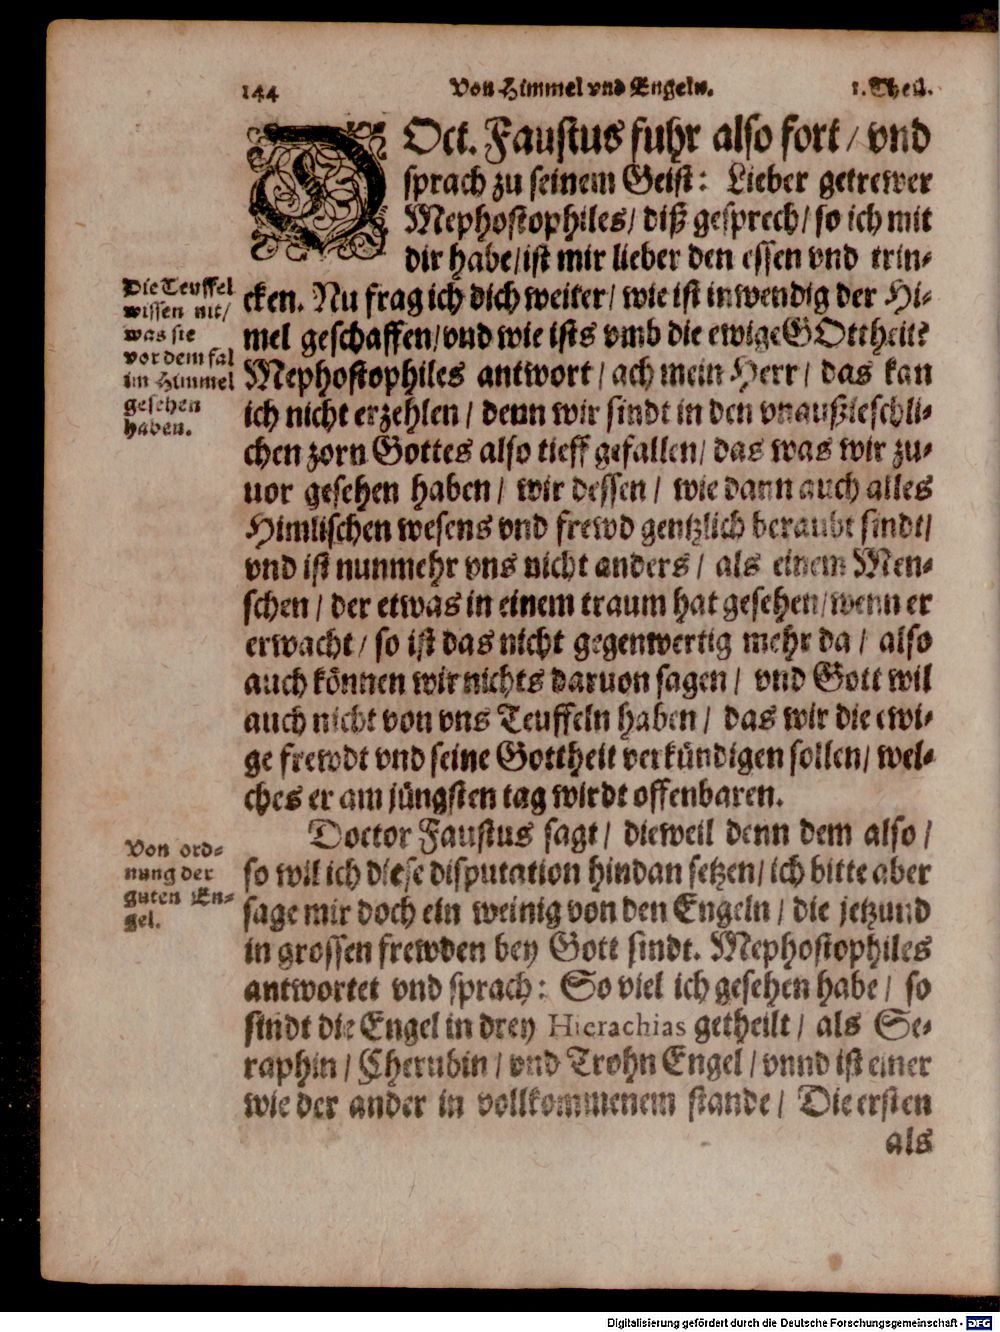 144 Von Himmel vnd Engeln. 1. Theil.
DOct. Faustus fuhr also fort / vnd
sprach zu seinem Geist: Lieber getrewer
Mephostophiles / diß gesprech / so ich mit
dir habe / ist mir lieber den essen vnd trin-
cken. Nu frag ich dich weiter / wie ist inwendig der Hi-
mel geschaffen / vnd wie ists vmb die ewige GOttheit?
Mephostophiles antwort / ach mein Herr / das kan
ich nicht erzehlen / denn wir sindt in den vnaußleschli-
chen zorn Gottes also tieff gefallen / das was wir zu-
uor gesehen haben / wir dessen / wie dann auch alles
Himlischen wesens vnd frewd gentzlich beraubt sindt /
vnd ist nunmehr vns nicht anders / als einem Men-
schen / der etwas in einem traum hat gesehen / wenn er
erwacht / so ist das nicht gegenwertig mehr da / also
auch können wir nichts daruon sagen / vnd Gott wil
auch nicht von vns Teuffeln haben / das wir die ewi-
ge frewdt vnd seine Gottheit verkündigen sollen / wel-
ches er am jüngsten tag wirdt offenbaren.
Die Teuffel
wissen nit /
was sie
vor dem fal
im Himmel
gesehen
haben.
Doctor Faustus sagt / dieweil denn dem also /
so wil ich diese disputation hindan setzen / ich bitte aber
sage mir doch ein weinig von den Engeln / die jetzund
in grossen frewden bey Gott sindt. Mephostophiles
antwortet vnd sprach: So viel ich gesehen habe / so
sindt die Engel in drey Hierachias getheilt / als Se-
raphin / Cherubin / vnd Trohn Engel / vnnd ist einer
wie der ander in vollkommenem stande / Die ersten
als
Von ord-
nung der
guten En-
gel.
Digitalisierung gefördert durch die Deutsche Forschungsgemeinschaft - DFG